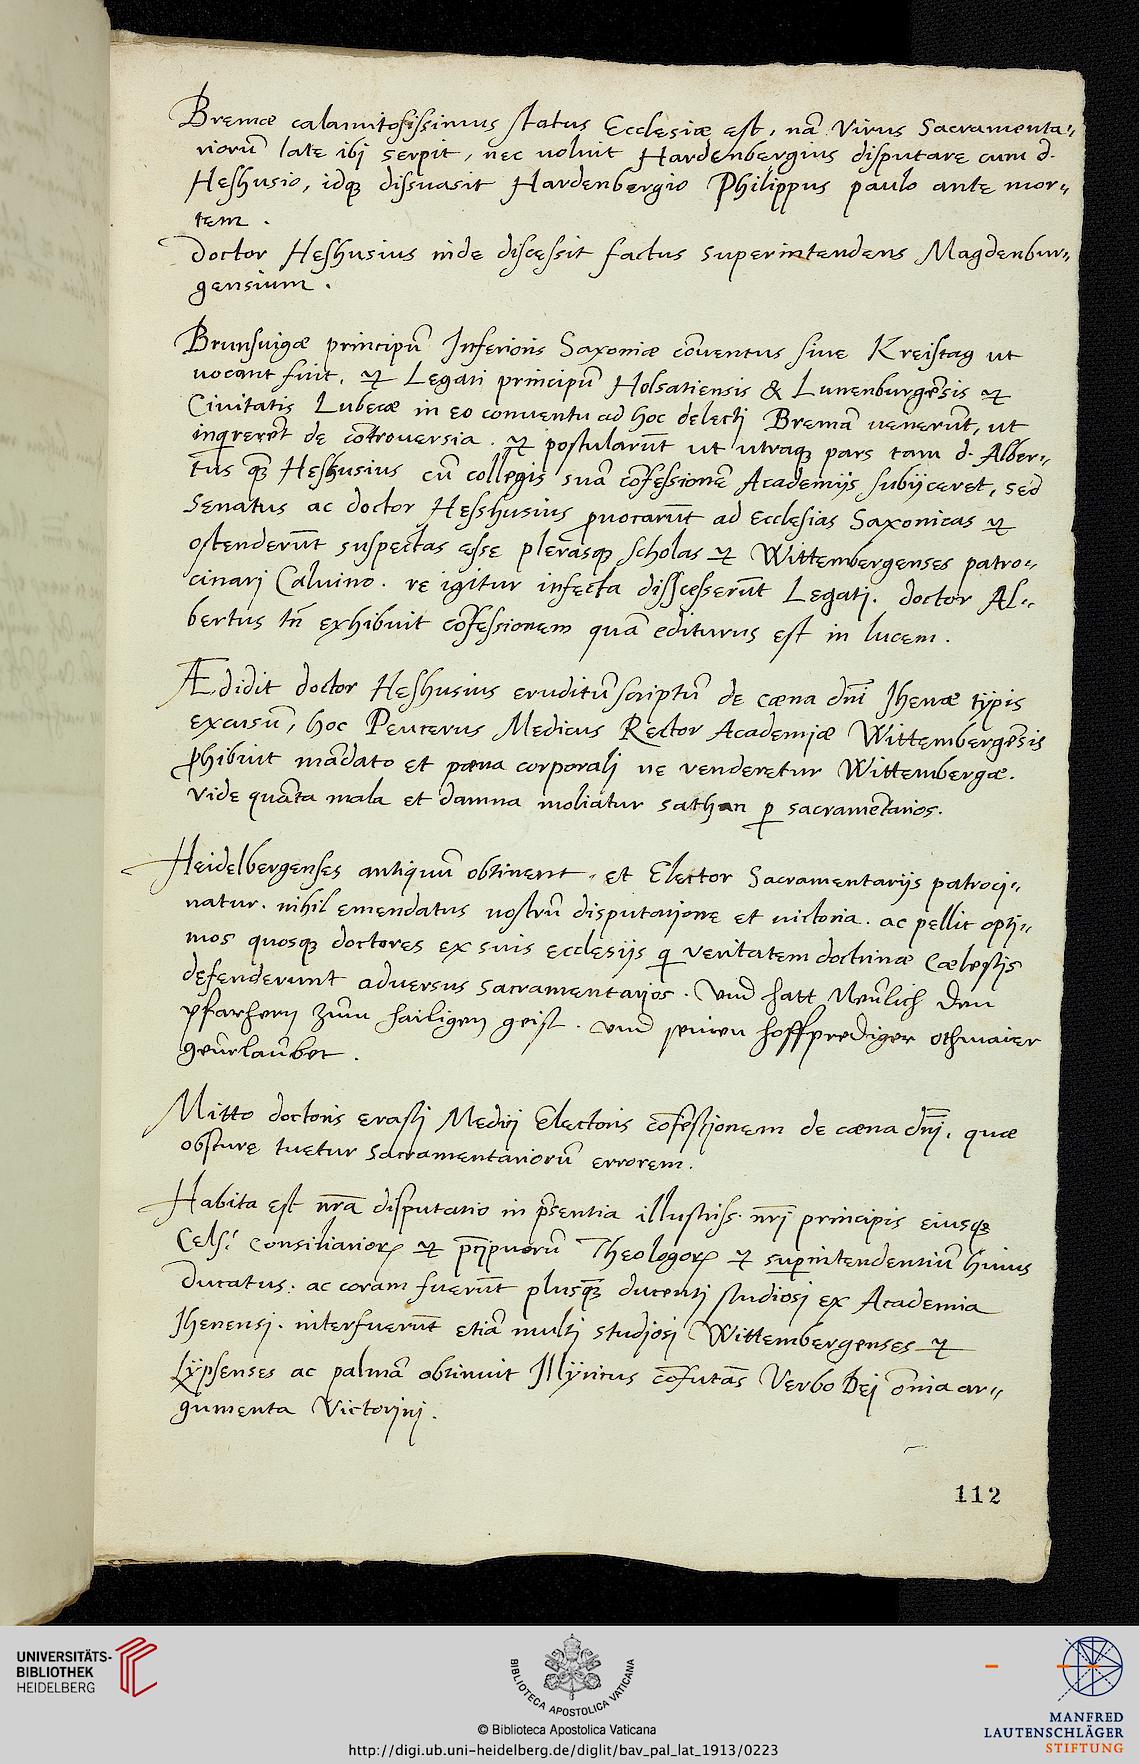 Bremæ calamitosissimus status Ecclesiæ est, nã Virus Sacramenta-
riorũ late ibi serpit, nec voluit Hardenbergius disputare cum d.
Heshusio, idqꝫ dissuasit Hardenbergio Philippus paulo ante mor-
tem.
Doctor Heshusius inde discessit factus superintendens Magdenbur-
gensium.
Brunsuigæ principũ Inferioris Saxoniæ cõventus sive Kreistag ut
vocant fuit, et Legati principũ Holsatiensis & Lunenburgẽsis et
Civitatis Lubecæ in eo conventu ad hoc delecti Bremã venerũt, ut
inqrerẽt de cõtroversia. et postularũt ut utraqꝫ pars tam d. Alber-
tus qꝫ Heshusius cũ collegis suã cõfessionẽ Academijs subijceret, sed
Senatus ac doctor Hesshusius ꝓvocarũt ad Ecclesias Saxonicas et
ostenderũt suspectas esse plerasqꝫ scholas et Wittembergenses patro-
cinarj Calvino. re igitur infecta disscesserũt Legatj. doctor Al-
bertus tñ exhibuit cõfessionem quã editurus est in lucem.
Ædidit doctor Heshusius eruditũ scriptũ de cæna dñi Jhenæ tÿpis
excusũ, hoc Peucerus Medicus Rector Academiæ Wittembergẽsis
ꝓhibuit mãdato et pœna corporalj ne venderetur Wittembergæ.
Vide quãta mala et damna moliatur sathan ꝑ sacramẽtarios.
Heidelbergenses antiquũ obtinent. et Elector Sacramentarijs patroci-
natur. nihil emendatus nostrũ disputatione et victoria. ac pellit opti-
mos quosqꝫ doctores ex suis ecclesijs qi veritatem doctrinæ Cælestis
defenderunt adversus Sacramentarios. Und hatt Neulich den
pfarhern zum hailigen geist. und seinen hoffprediger othmaier
geurlaubet.
Mitto doctoris erasti Medici Electoris cõfessionem de cæna dñi, quæ
obscure tuetur Sacramentariorũ errorem.
Habita est nr̃a disputatio in pr̃sentia illustriss. nr̃j principis eiusqꝫ
Cels: Consiliarioꝝ et pr̃cipuorũ Theologoꝝ et suꝑintendentiũ huius
Ducatus: ac coram fuerũt plusqꝫ ducentj studiosj ex Academia
Jhenensj. interfuerũt etiã multj studiosj Wittembergenses et
Lÿpsenses ac palmã obtinuit Jllÿricus cõfutãs Verbo Dej oĩa ar-
gumenta Victorinj.
112
UNIVERSITÄTS-
BIBLIOTHEK
HEIDELBERG
BIBLIOTHECA APOSTOLICA VATICANA
© Biblioteca Apostolica Vaticana
http://digi.ub.uni-heidelberg.de/diglit/bav_pal_lat_1913/0223
MANFRED
LAUTENSCHLÄGER
STIFTUNG